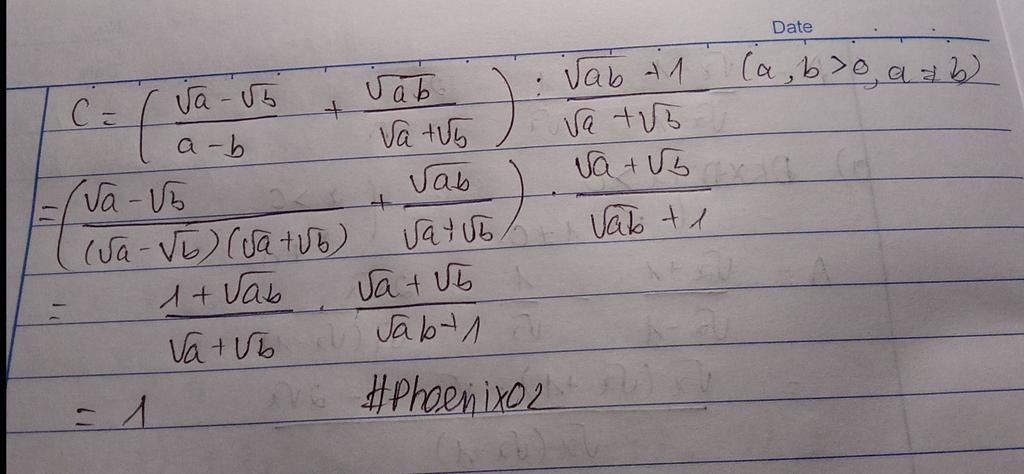 Date
C = ( (√a - √b)/(a - b) + √ab/(√a + √b) ) : (√ab + 1)/(√a + √b) (a, b > 0, a ≠ b)
= ( (√a - √b)/((√a - √b)(√a + √b)) + √ab/(√a + √b) ) . (√a + √b)/(√ab + 1)
= (1 + √ab)/(√a + √b) . (√a + √b)/(√ab + 1)
= 1 #Phoenix02